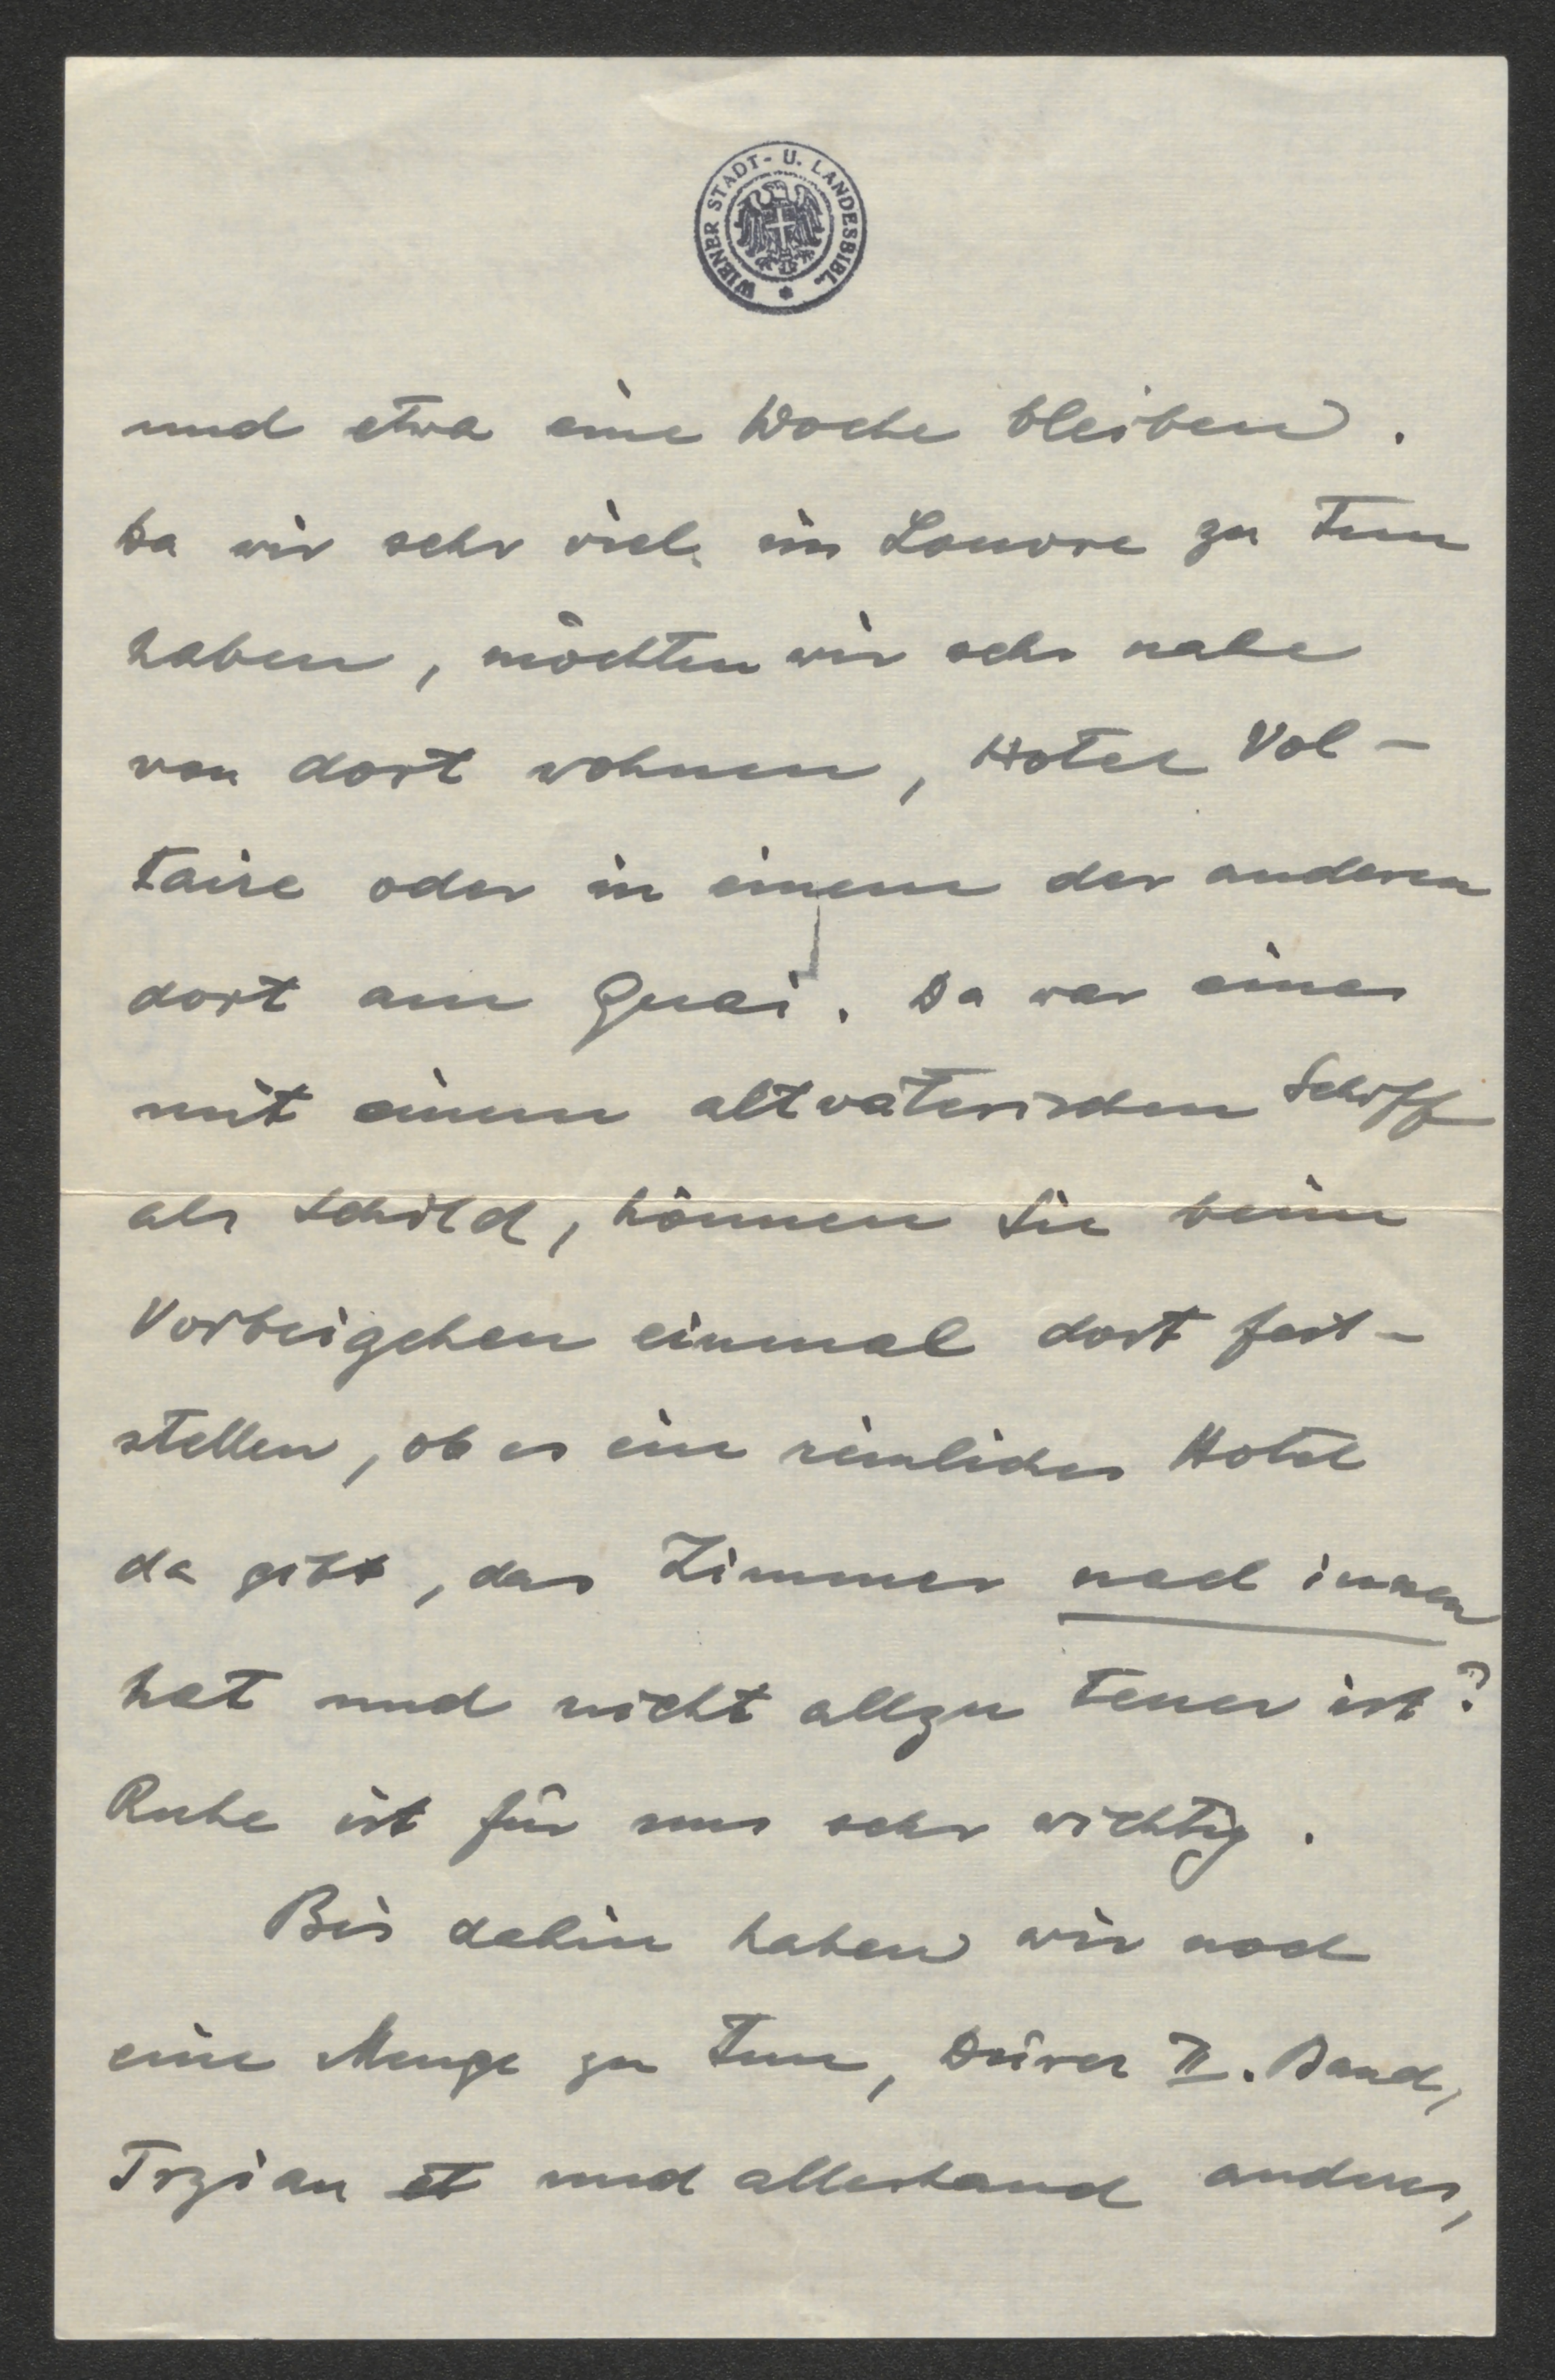 WIENER STADT- U. LANDESBIBL. *
und etwa eine Woche bleiben.
Da wir sehr viel im Louvre zu tun
haben, möchten wir sehr nahe
von dort wohnen, Hotel Vol-
taire oder in einem der anderen
dort am Quai. Da war eines
mit einem altväterischen Schiff
als Schild, können Sie beim
Vorbeigehen einmal dort fest-
stellen, ob es ein reinliches Hotel
da gibt, das Zimmer nach innen
hat und nicht allzu teuer ist?
Ruhe ist für uns sehr wichtig.
Bis dahin haben wir noch
eine Menge zu tun, Dürer II. Band,
Tizian et und allerhand anderes,